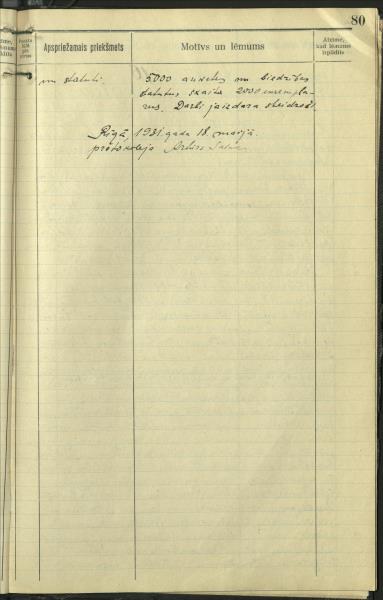 80
Apspriežamais priekšmets
Motīvs un lēmums
Atzīme,
kad lēmums
izpildīts
un statuti.
5000 anketes un biedrības
statutus skaitā 2000 eksempla-
rus. Darbi jaizdara steidzoši.
Rīgā, 1931. gada 18. maijā.
protokolēja